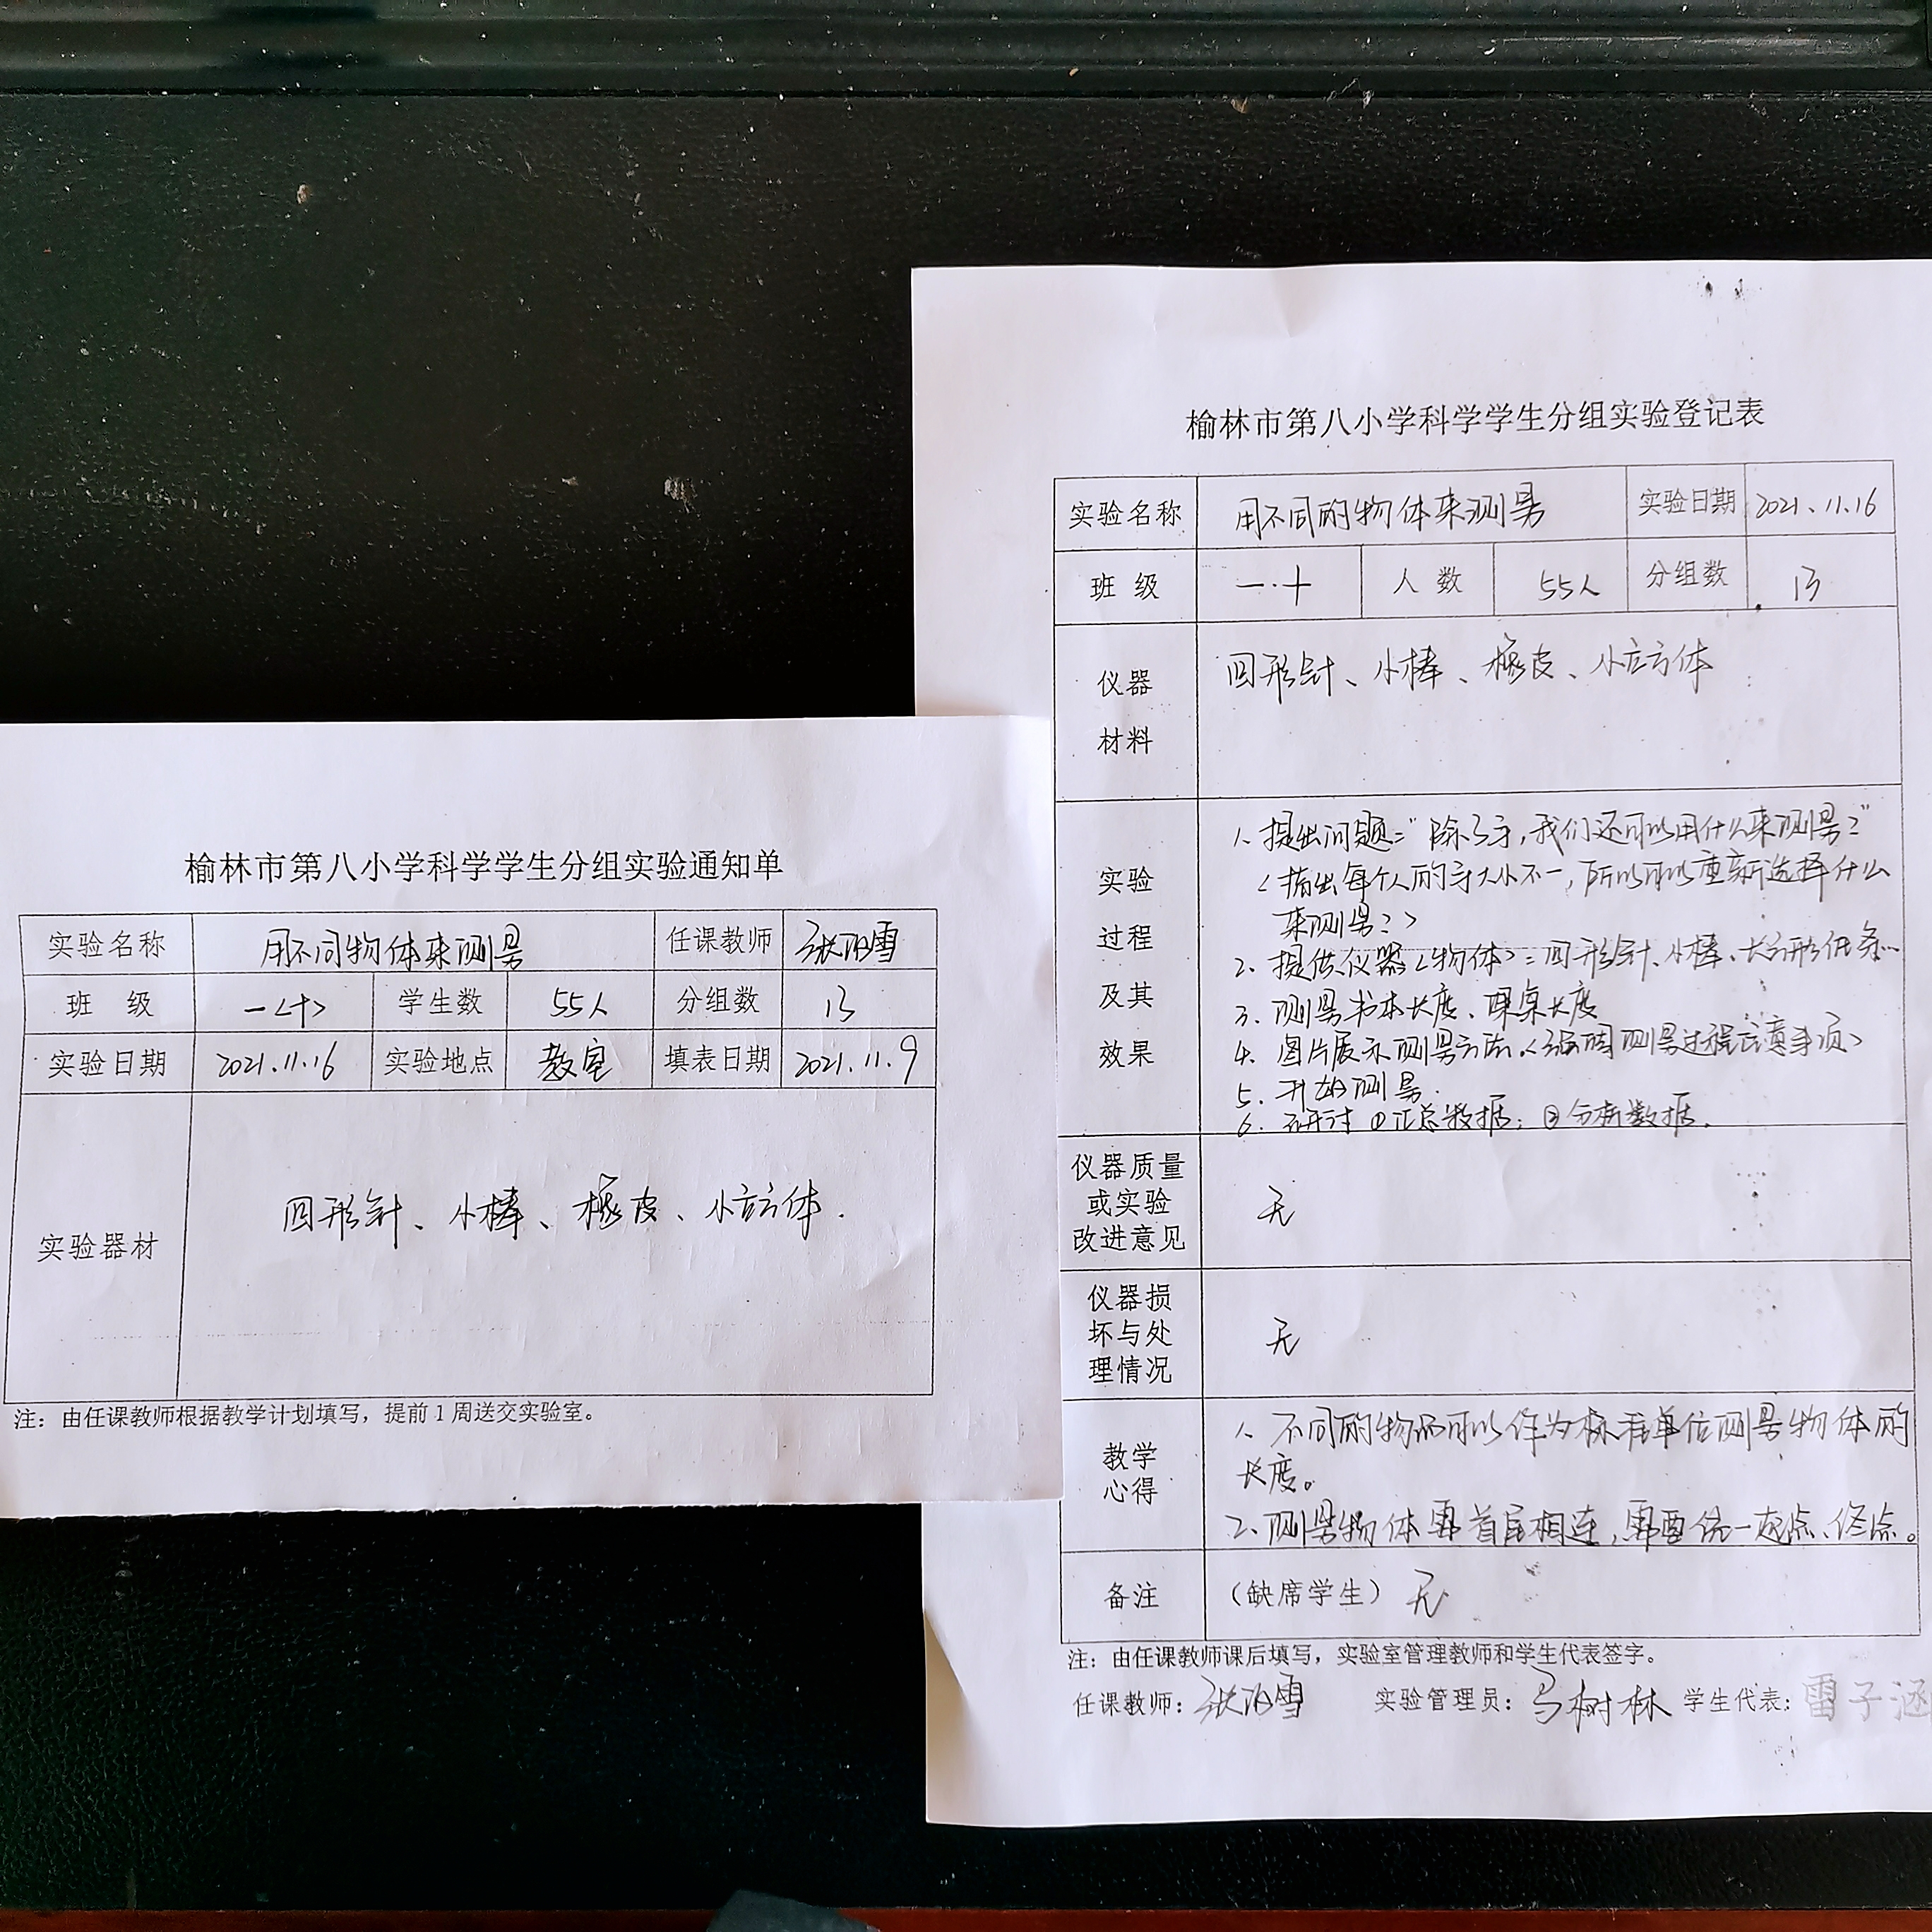 榆林市第八小学科学学生分组实验通知单
实验名称 用不同物体来测量 任课教师
班 级 一<十> 学生数 55人 分组数 13
实验日期 2021.11.16 实验地点 教室 填表日期 2021.11.9
实验器材 回形针、小棒、橡皮、小立方体.
注：由任课教师根据教学计划填写，提前1周送交实验室。
榆林市第八小学科学学生分组实验登记表
实验名称 用不同的物体来测量 实验日期 2021.11.16
班 级 一.十 人 数 55人 分组数 13
仪器
材料
回形针、小棒、橡皮、小立方体
实验
过程
及其
效果
1、提出问题:"除了手,我们还可以用什么来测量?"
<指出每个人的手大小不一,所以可以重新选择什么
来测量?>
2、提供仪器<物体>:回形针、小棒、长方形纸条…
3、测量书本长度、课桌长度
4、图片展示测量方法.<强调测量过程注意事项>
5、开始测量.
6、研讨 ①汇总数据; ②分析数据.
仪器质量
或实验
改进意见
无
仪器损
坏与处
理情况
无
教学
心得
1、不同的物品可以作为标准单位测量物体的
长度。
2、测量物体需首尾相连,需要统一起点、终点。
备注 （缺席学生） 无
注：由任课教师课后填写，实验室管理教师和学生代表签字。
任课教师： 实验管理员：马树林 学生代表：雷子涵